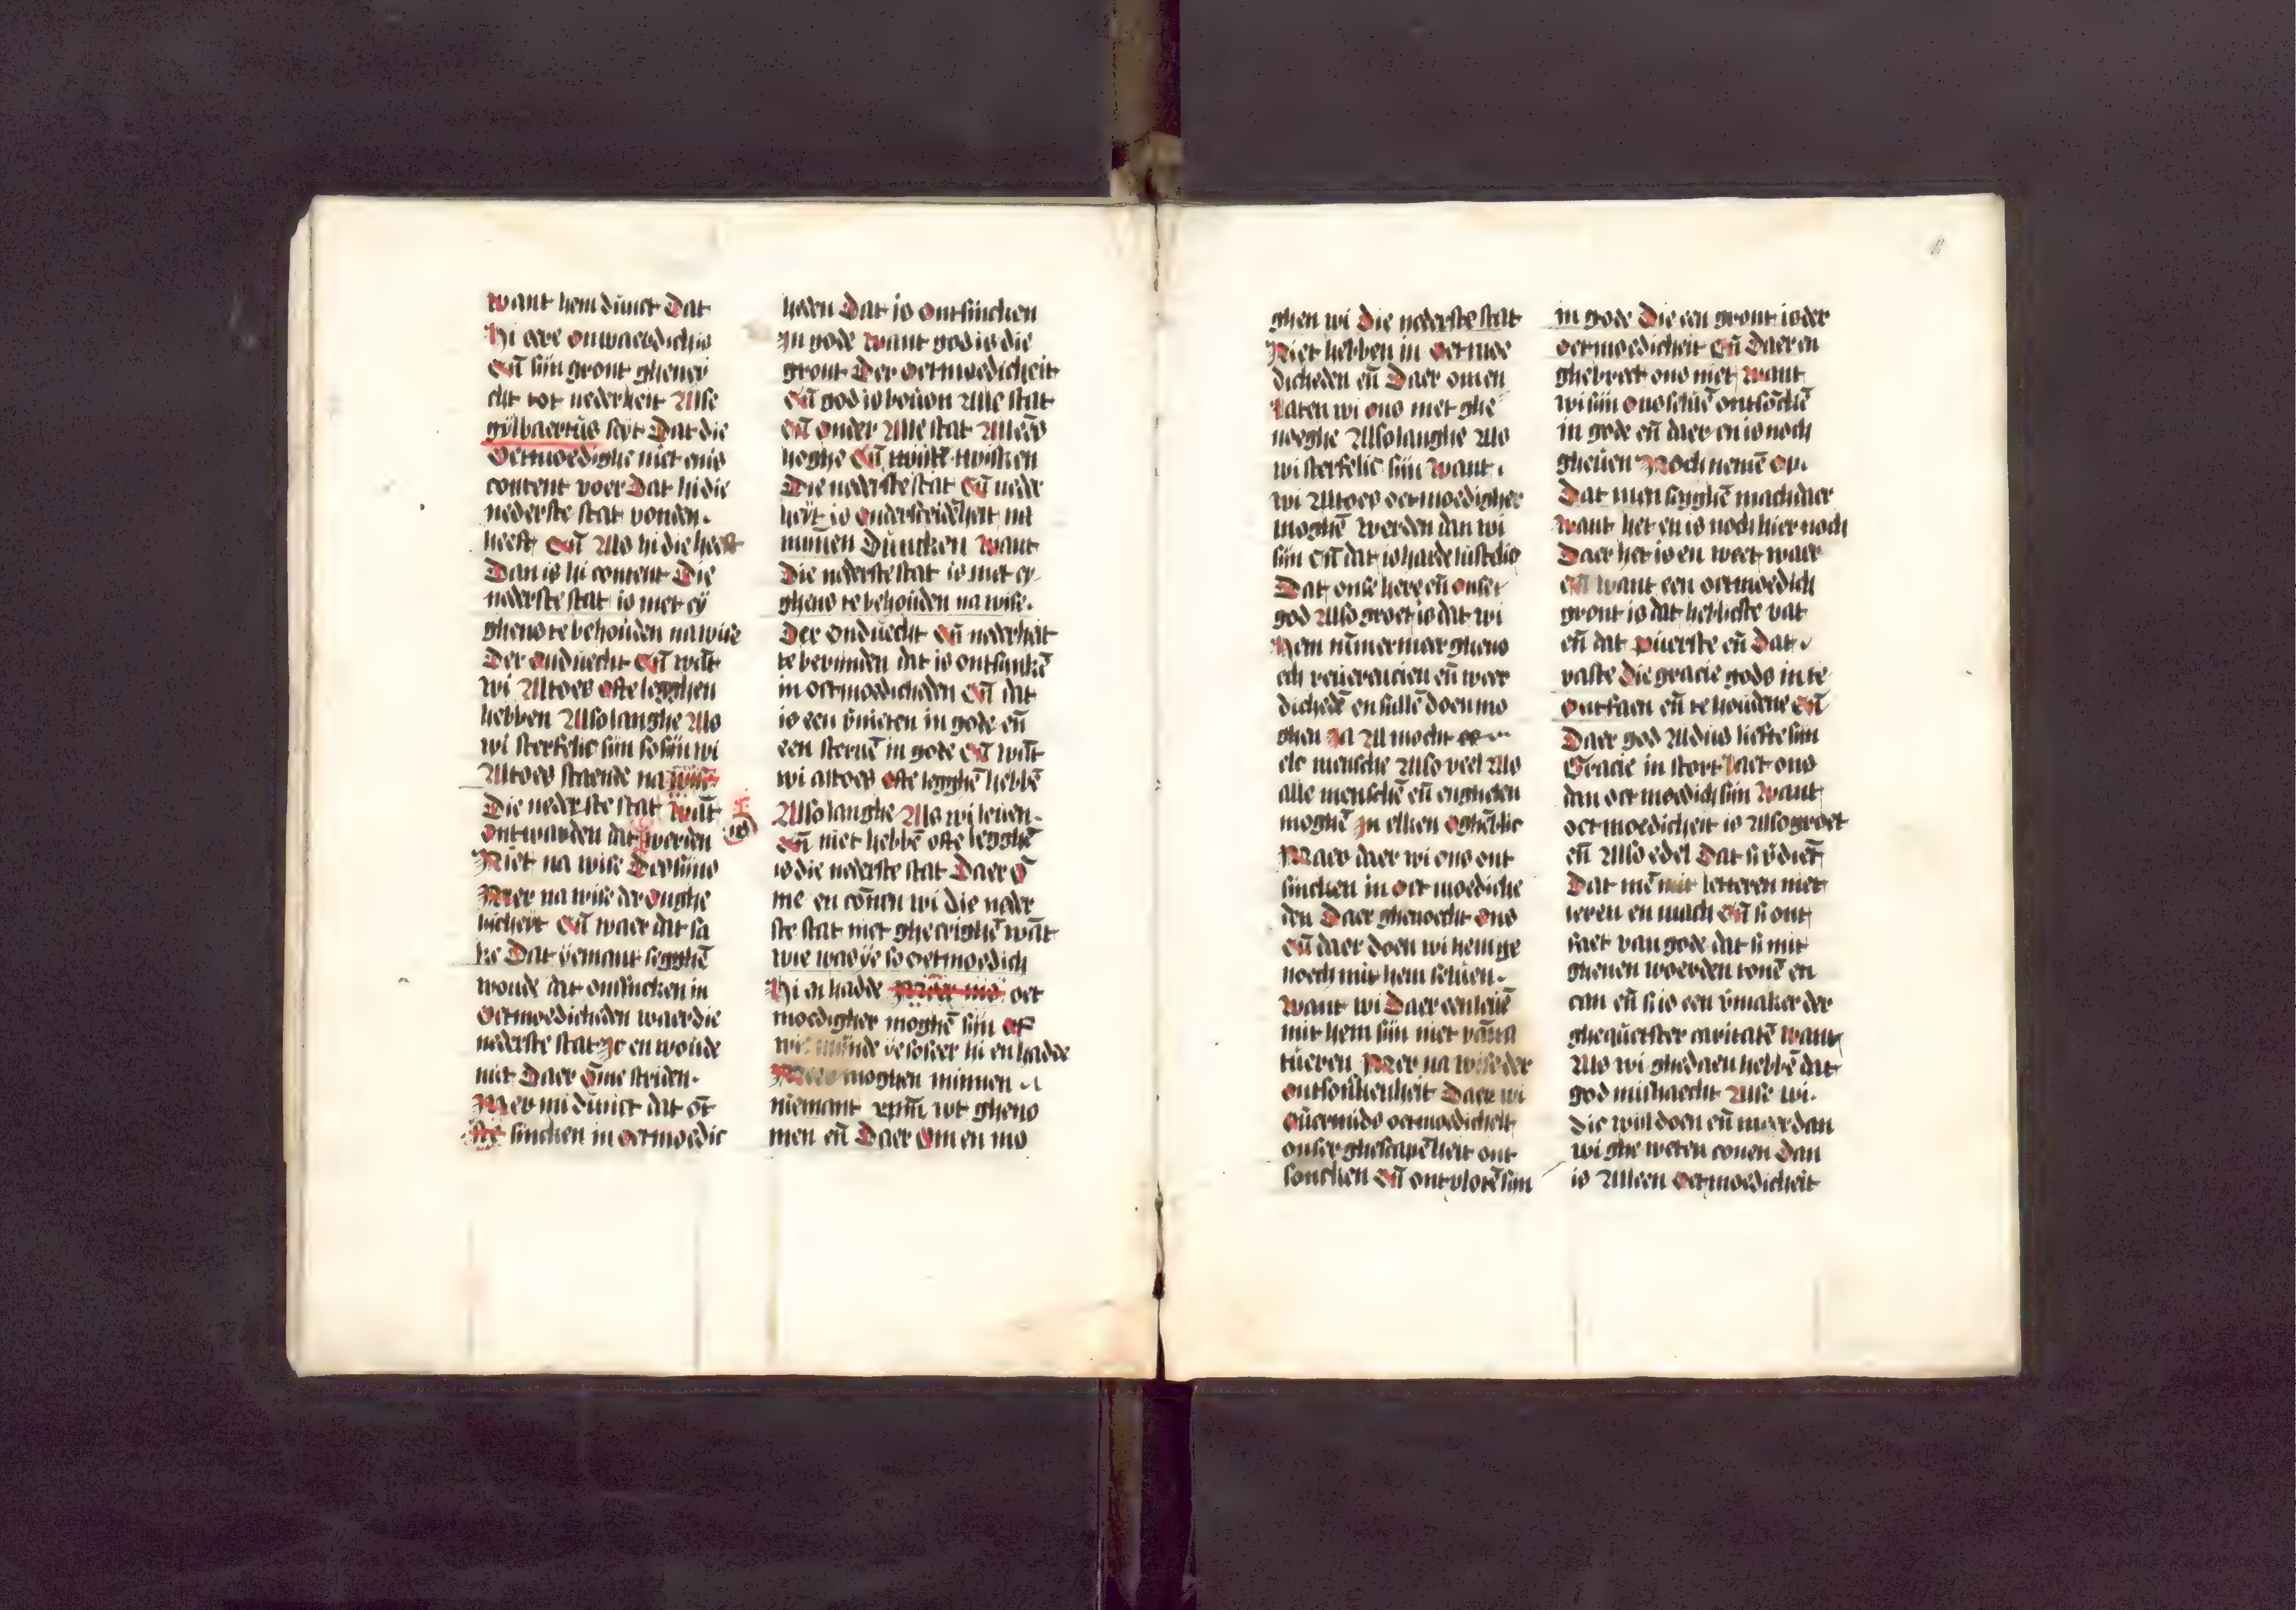 want hem dunct Dat
Hi eere onwaerdich is
En̄ sijn gront gheney
cht tot nederheit Alse
gylbaertus seyt Dat die
Oetmoedighe niet enis
content voer Dat hi die
nederste stat vonden.
heeft En̄ Als hi die heeft
Dan is hi content Die
nederste stat is niet ey
ghens te behouden na wise
Der onduecht En̄ wāt
wi Altoes ofte legghen
hebben Also langhe Als
wi sterfelic sijn so sijn wi
Altoes staende na
Die nederste stat wāt
ontwarden dat werden is
Niet na wise Des sijns
Mer na wise der onghe
licheit En̄ waer dat sa
ke Dat yemant segghē
woude dat ontsincken in
Oetmoedicheden waer die
nederste stat Ic en woude
niet Daer ōme striden.
Mer mi dunct dat ōt
sincken in oetmoedic
heden Dat is Ontsincken
In gode want god is die
gront Der oetmoedicheit
En̄ god is bouen Alle stat
En̄ onder Alle stat Alleēs
heghe En̄ twisken
Die nederste stat En̄ neder
heyt is onderscheidēheit na
minen Duncken want
Die nederste stat is niet ey
ghens te behouden na wise.
Der onduecht En̄ nederheit
te bevinden dat is ontsinkē
in oetmoedicheden En̄ dat
is een v̄nieten in gode en̄
een steruē in gode En̄ wāt
wi altoes ofte legghē hebbē
Also langhe Als wi leuen.
En̄ niet hebbē ofte legghē
is die nederste stat Daer ō
me en cōnen wi die neder
ste stat niet ghecrighē wāt
wie was ye so oetmoedich
Hi en hadde oet
moedigher moghē sijn of
wie minde ye so seer hi en hadde
Meer moghen minnen
niemant xpm̄ wt gheno
men en̄ Daer Om en mo
ghen wi Die nederste stat
Niet hebben in oetmoe
dicheden en̄ Daer om en
Laten wi ons niet ghe
noeghe Also langhe Als
wi sterfelic sijn want.
wi Altoes oetmoedigher
moghē werden dan wi
sijn En̄ dat is harde lustelic
Dat onse here en̄ onse
god Also groet is dat wi
Hem nūmermeer ghens
ech reuerencien en̄ weer
dichedē en sullē doen mo
ghen Ja Al mocht
elc mensche Also veel Als
alle menschē en̄ engnelen
moghē In elken oghēblic
Maer daer wi ons ont
sincken in oet moediche
den Daer ghenoecht ons
En̄ daer doen wi hem ghe
noech mit hem seluen.
want wi Daer een leuē
mit hem sijn niet vā na
tueren Mer na wise der
ontsonkenheit Daer wi
ouermids oetmoedicheit
onser ghescapēheit ont
soncken En̄ ontvlotē sijn
in gode Die een gront is der
oetmoedicheit En̄ Daer en
ghebrect ons niet want
wi sijn ons seluē ontsōckē
in gode en̄ daer en is noch
gheuen Noch nemē op.
Dat men segghē mach daer
want het en is noch hier noch
Daer het is en weet waer
En̄ want een oetmoedich
gront is dat heblicste vat
en̄ dat puerste en̄ Dat.
vaste Die gracie gods in te
ontfaen en̄ te houdene En̄
Daer god Aldus liefte sijn
Gracie in stort laet ons
dan oet moedich sijn want
oet moedicheit is Also groet
en̄ Also edel Dat si v̄diēt
Dat mē mit letteren niet
leren en mach En̄ si ont
faet van gode dat si mit
ghenen woerden tonē en
can en̄ si is een v̄maker der
ghequetster caritatē want
Als wi ghedaen hebbē dat
god mishaecht Alse wi.
die wil doen en̄ meer dan
wi ghe weten conen Dan
is Alleen oetmoedicheit